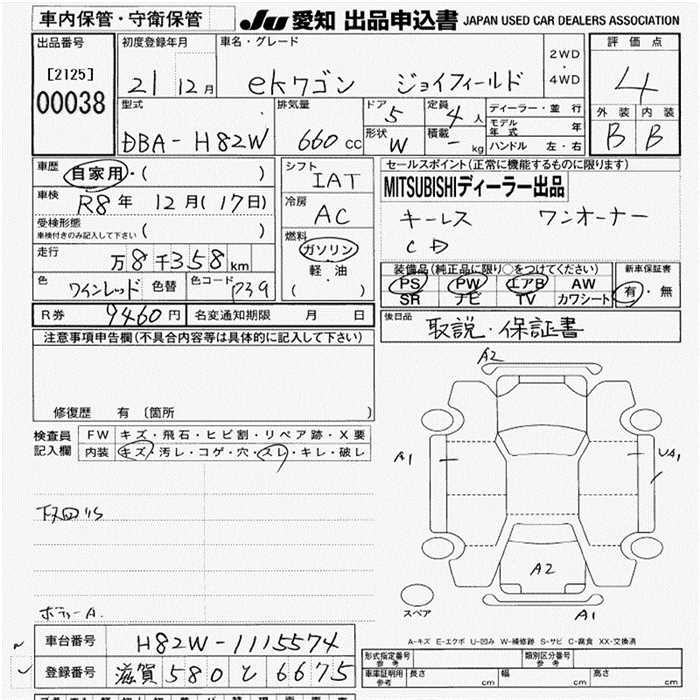 車内保管・守衛保管 JU 愛知 出品申込書 JAPAN USED CAR DEALERS ASSOCIATION
出品番号 初度登録年月 車名・グレード 評価点
[2125] 21 12月 ekワゴン ジョイフィールド 2WD ・ 4WD 4
00038 型式 排気量 ドア 5 定員 4人 ディーラー・並行 外装 内装
DBA-H82W 660cc 形状 W 積載 - kg モデル年式 年 B B
ハンドル 左・右
車歴 自家用・( ) シフト IAT セールスポイント(正常に機能するものに限ります)
車検 R8年 12月(17日) 冷房 AC MITSUBISHIディーラー出品
受検形態 車検付きのみ記入して下さい ( ) キーレス ワンオーナー
走行 万8千358km 燃料 ガソリン CD
軽・油 装備品(純正品に限り○をつけてください) 新車保証書
色 ワインレッド 色替 色コード P39 ( ・ ) PS PW エアB AW 有・無
SR ナビ TV カワシート
R券 9460円 名変通知期限 月 日 後日品 取説・保証書
注意事項申告欄(不具合内容等は具体的に記入して下さい)
修復歴 有 〔箇所 〕
検査員 FW キズ・飛石・ヒビ割・リペア跡・X要
記入欄 内装 キズ・汚レ・コゲ・穴・スレ・キレ・破レ
A2
A1 UA1
A2
スペア A1
下回りS
ボデーA.
A-キズ E-エクボ U-凹み W-補修跡 S-サビ C-腐食 XX-交換済
車台番号 H82W-1115574 形式指定番号 参考 類別区分番号 参考
登録番号 滋賀580と6675 車庫証明用 参考 長さ 幅 高さ